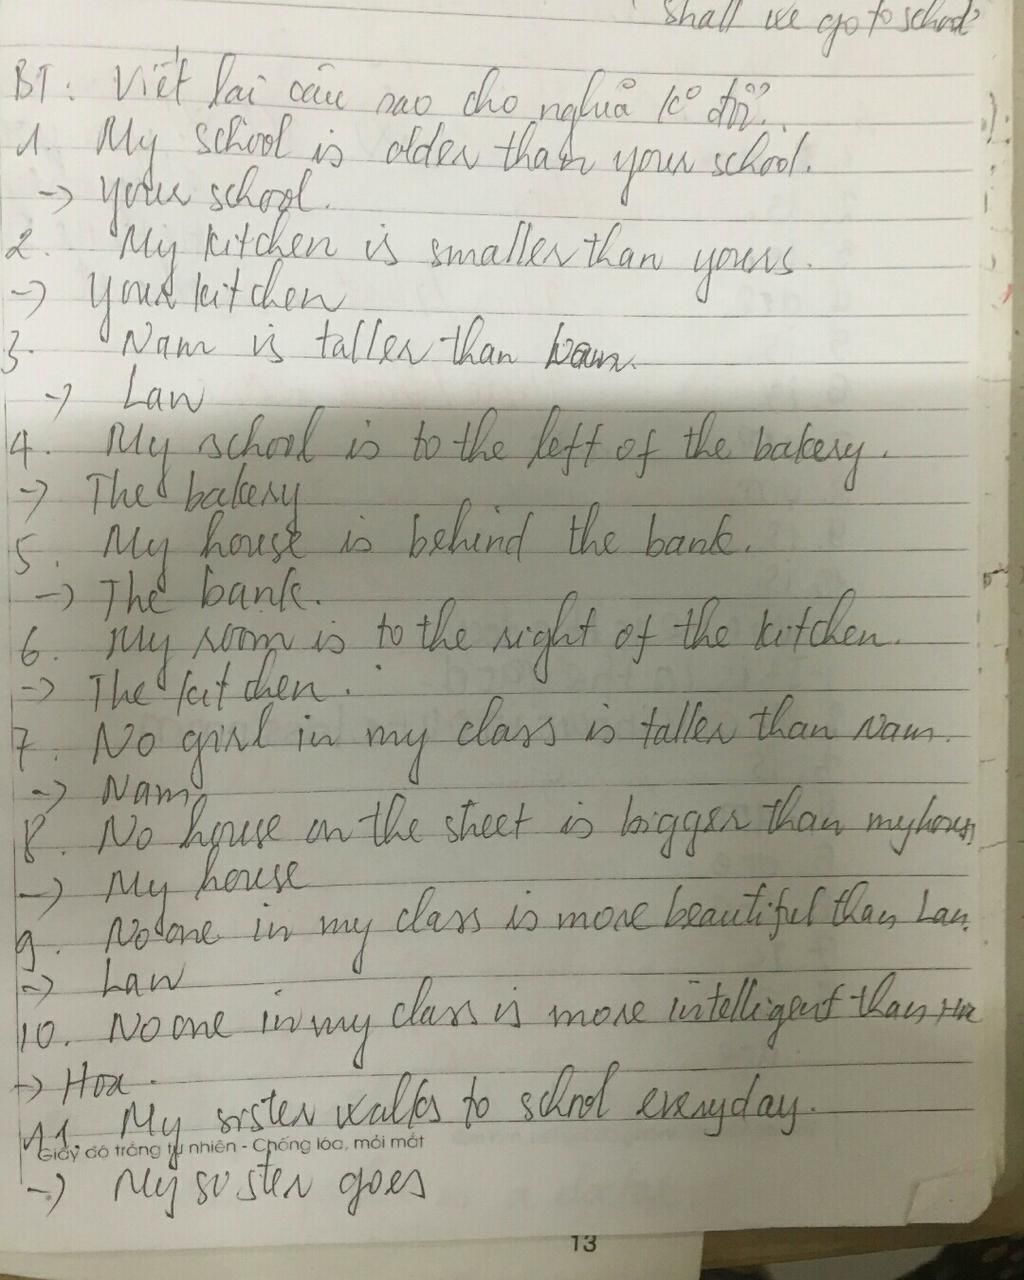 Shall we go to school?
BT: Viết lại câu sao cho nghĩa ko đổi.
1. My school is older than your school.
-> your school.
2. My kitchen is smaller than yours.
-> your kitchen
3. Nam is taller than
-> Lan
4. My school is to the left of the bakery.
-> The bakery
5. My house is behind the bank.
-> The bank.
6. My room is to the right of the kitchen.
-> The kitchen.
7. No girl in my class is taller than Nam.
-> Nam
8. No house on the street is bigger than my house
-> My house
9. No one in my class is more beautiful than Lan.
-> Lan
10. No one in my class is more intelligent than Hoa
-> Hoa.
11. My sister walks to school everyday.
Giấy có độ trắng tự nhiên - Chống lóa, mỏi mắt
-> My sister goes
13